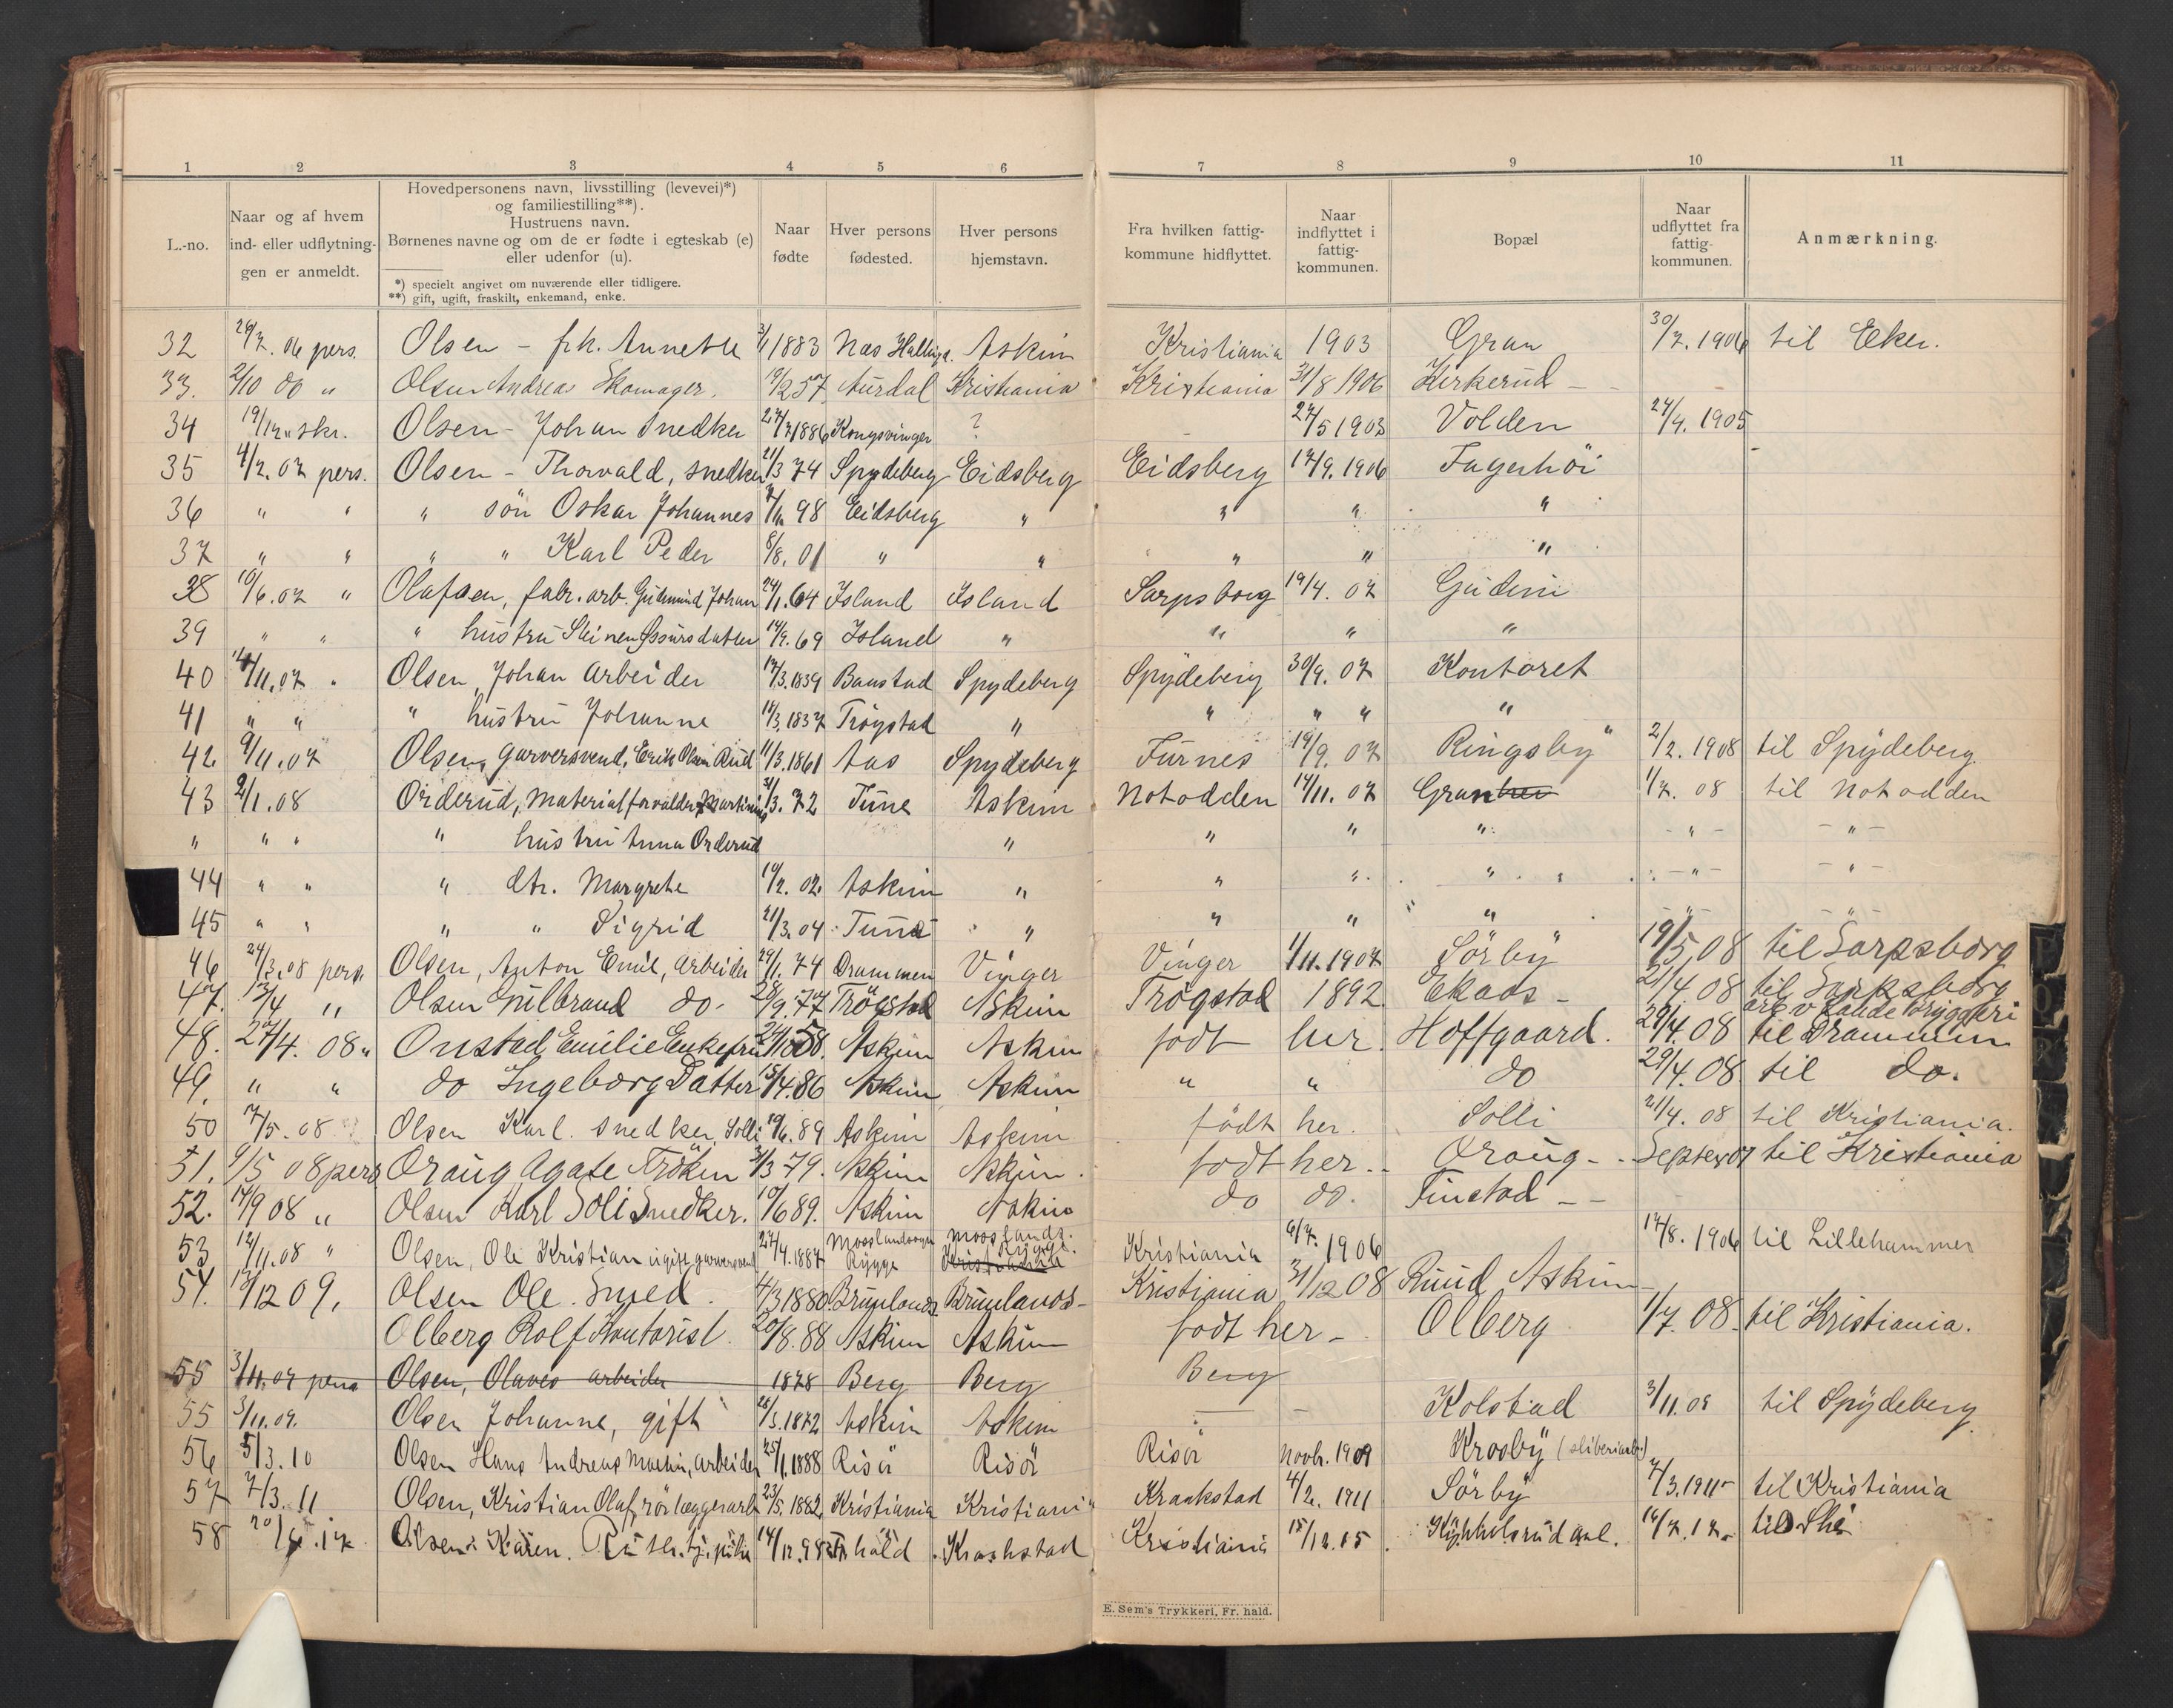 1 2 3 4 5 6 7 8 9 10 11
L.-no.
Naar og af hvem
ind- eller udflytnin-
gen er anmeldt.
Hovedpersonens navn, livsstilling (levevei)*)
og familiestilling**).
Hustruens navn.
Børnenes navne og om de er fødte i egteskab (e)
eller udenfor (u).
*) specielt angivet om nuværende eller tidligere.
**) gift, ugift, fraskilt, enkemand, enke.
Naar
fødte
Hver persons
fødested.
Hver persons
hjemstavn.
Fra hvilken fattig-
kommune hidflyttet.
Naar
indflyttet i
fattig-
kommunen.
Bopæl
Naar
udflyttet fra
fattig-
kommunen.
Anmærkning.
32 26/7. 06 pers. Olsen - frk. Annette 1883 Nas Askim Kristiania 1903 Gran 30/7. 1906 til Eker.
33. 2/10 00 " Olsen Andreas Skomager. 19/2 57 Aurdal Kristiania Kristiania 31/8 1906 Kirkerud -
34 19/12 " skr. Olsen - Johan Snedker 1886 Kongsvinger ? - 27/5 1903 Volden 24/9. 1905
35 4/2. 07 pers. Olsen - Thorvald, snedker 21/3 74 Spydeberg Eidsberg Eidsberg 17/9. 1906 Fagerhöi
36 " " " sön Oskar Johannes 98 Eidsberg " " " "
37 " " " " Karl Peder 8/8. 01 " " " " "
38 10/6. 07 " Olafsen, fabr. arb. Gudmund Johan 24/1. 64 Island Island Sarpsborg 19/4. 07 Guderu
39 " " " hustru Össursdatter 14/9. 69 Island " " " "
40 /11. 07 " Olsen, Johan Arbeider 17/3. 1839 Baastad Spydeberg Spydeberg 30/9. 07 Kontoret
41 " " " hustru Johanne 11/3. 1837 Trögstad " " " " "
42 9/11. 07 Olsen, garversvend, Erik Olsen Rud 11/3. 1861 Aas Spydeberg Furnes 19/9. 07 Ringsby" 2/2. 1908 til Spydeberg
43 2/1. 08 Orderud, Materialforvalder, Martinius 31/3. 72 Tune Askim Notodden 14/11. 07 Gran 1/7. 08 til Notodden
" " " " hustru Anna Orderud " " " " - " - - " -
44 " " " dtr. Margrethe 14/2. 02. Askim " " " " - " - - " -
45 " " " " Sigrid 21/3. 04 Tune " " " " - " - - " -
46 24/3. 08 pers. Olsen, Anton Emil, Arbeider 29/1. 74 Drammen Vinger Vinger 1/11. 1907 Sörby 19/5. 08 til Sarpsborg
47. 13/4 " Olsen Gulbrand do- 28/9. 77 Trögstad Askim Trögstad 1892 Ekaas - 21/4 08 til Sarpsborg
arb. v. bryggeri
48. 27/4. 08 " Onstad, Emilie Enkefru 58. Askim Askim födt her. Hoffgaard. 29/4. 08 til Drammen
49. " " do Ingeborg Datter 15/4. 86 Askim Askim " " do 29/4. 08 til do.
50 7/5. 08 Olsen Karl. snedker, Solli 10/6. 89 Askim Askim födt her. Solli 21/4. 08 til Kristiania.
51. 9/5 08 pers Oraug Agate Fröken 3/3 79. Askim Askim. födt her. - Oraug - - Septer 07 til Kristiania
52. 14/9 08 " Olsen Karl Soli Snedker. 10/6 89. Askim Askim do do. Finstad - -
53 12/11. 08 " Olsen, Ole Kristian ugift garversvend 27/4. 1887 Mosslandsogn Rygge Moss lands. Rygge Kristiania Kristiania 6/7. 1906 14/8. 1906 til Lillehammer
54. 13/12 09, Olsen Ole. Smed. 4/3 1880. Brunlands Brunlands - Kristiania 31/12 08 Ruud Askim -
Olberg Rolf Kontorist. 20/8. 88 Askim Askim födt her - Olberg 1/7. 08. til Kristiania.
55 3/11. 09 pers Olsen, Olaves arbeider 1878 Berg Berg Berg
55 3/11. 09. Olsen Johanne, gift 28/3. 1872 Askim Askim - - Kolstad 3/11. 09 til Spydeberg
56 5/3. 10 Olsen Hans Andreas Martin, arbeider 25/1. 1888 Risör Risör Risör Novbr. 1909 Krosby (sliberiarb.)
57 7/3. 11 Olsen, Kristian Olaf, rörlæggerarb 23/5. 1882. Kristiania Kristiania Kraakstad 4/2. 1911 Sörby 7/3. 1911 - til Kristiania
58 Olsen. Karen. Ruth. tj. pike 14/12. 98 Kraakstad Kristiania 15/12. 15 Kykkelsrud anl. 16/7. 17. til Ski
E. Sem's Trykkeri, Fr. hald.